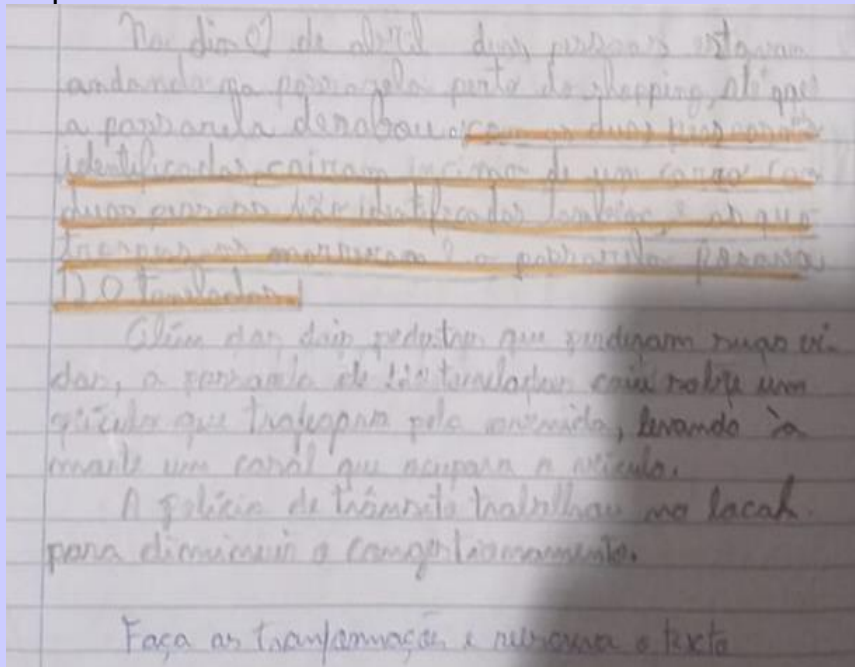 No dia 07 de abril duas pessoas estavam
andando na passarela perto do shopping, até que
a passarela desabou com as duas pessoas
identificadas, cairam incima de um carro com
duas pessoas não identificadas também, e as qua
tro pessoas morreram e a passarela pesava
120 toneladas.
Além dos dois pedestres que perderam suas vi-
das, a passarela de 120 toneladas caiu sobre um
veículo que trafegava pela avenida, levando à
morte um casal que ocupava o veículo.
A polícia de trânsito trabalhou no local
para diminuir o congestionamento.
Faça as transformações e reescreva o texto